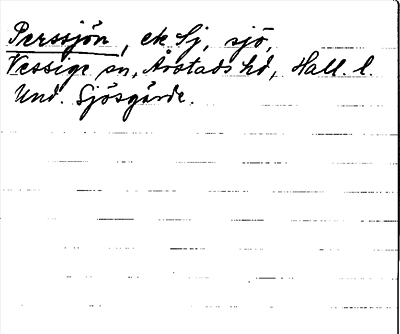 Perssjön, ek. Sj, sjö,
Vessige sn, Årstads hd, Hall. l.
Und. Sjösgårde.